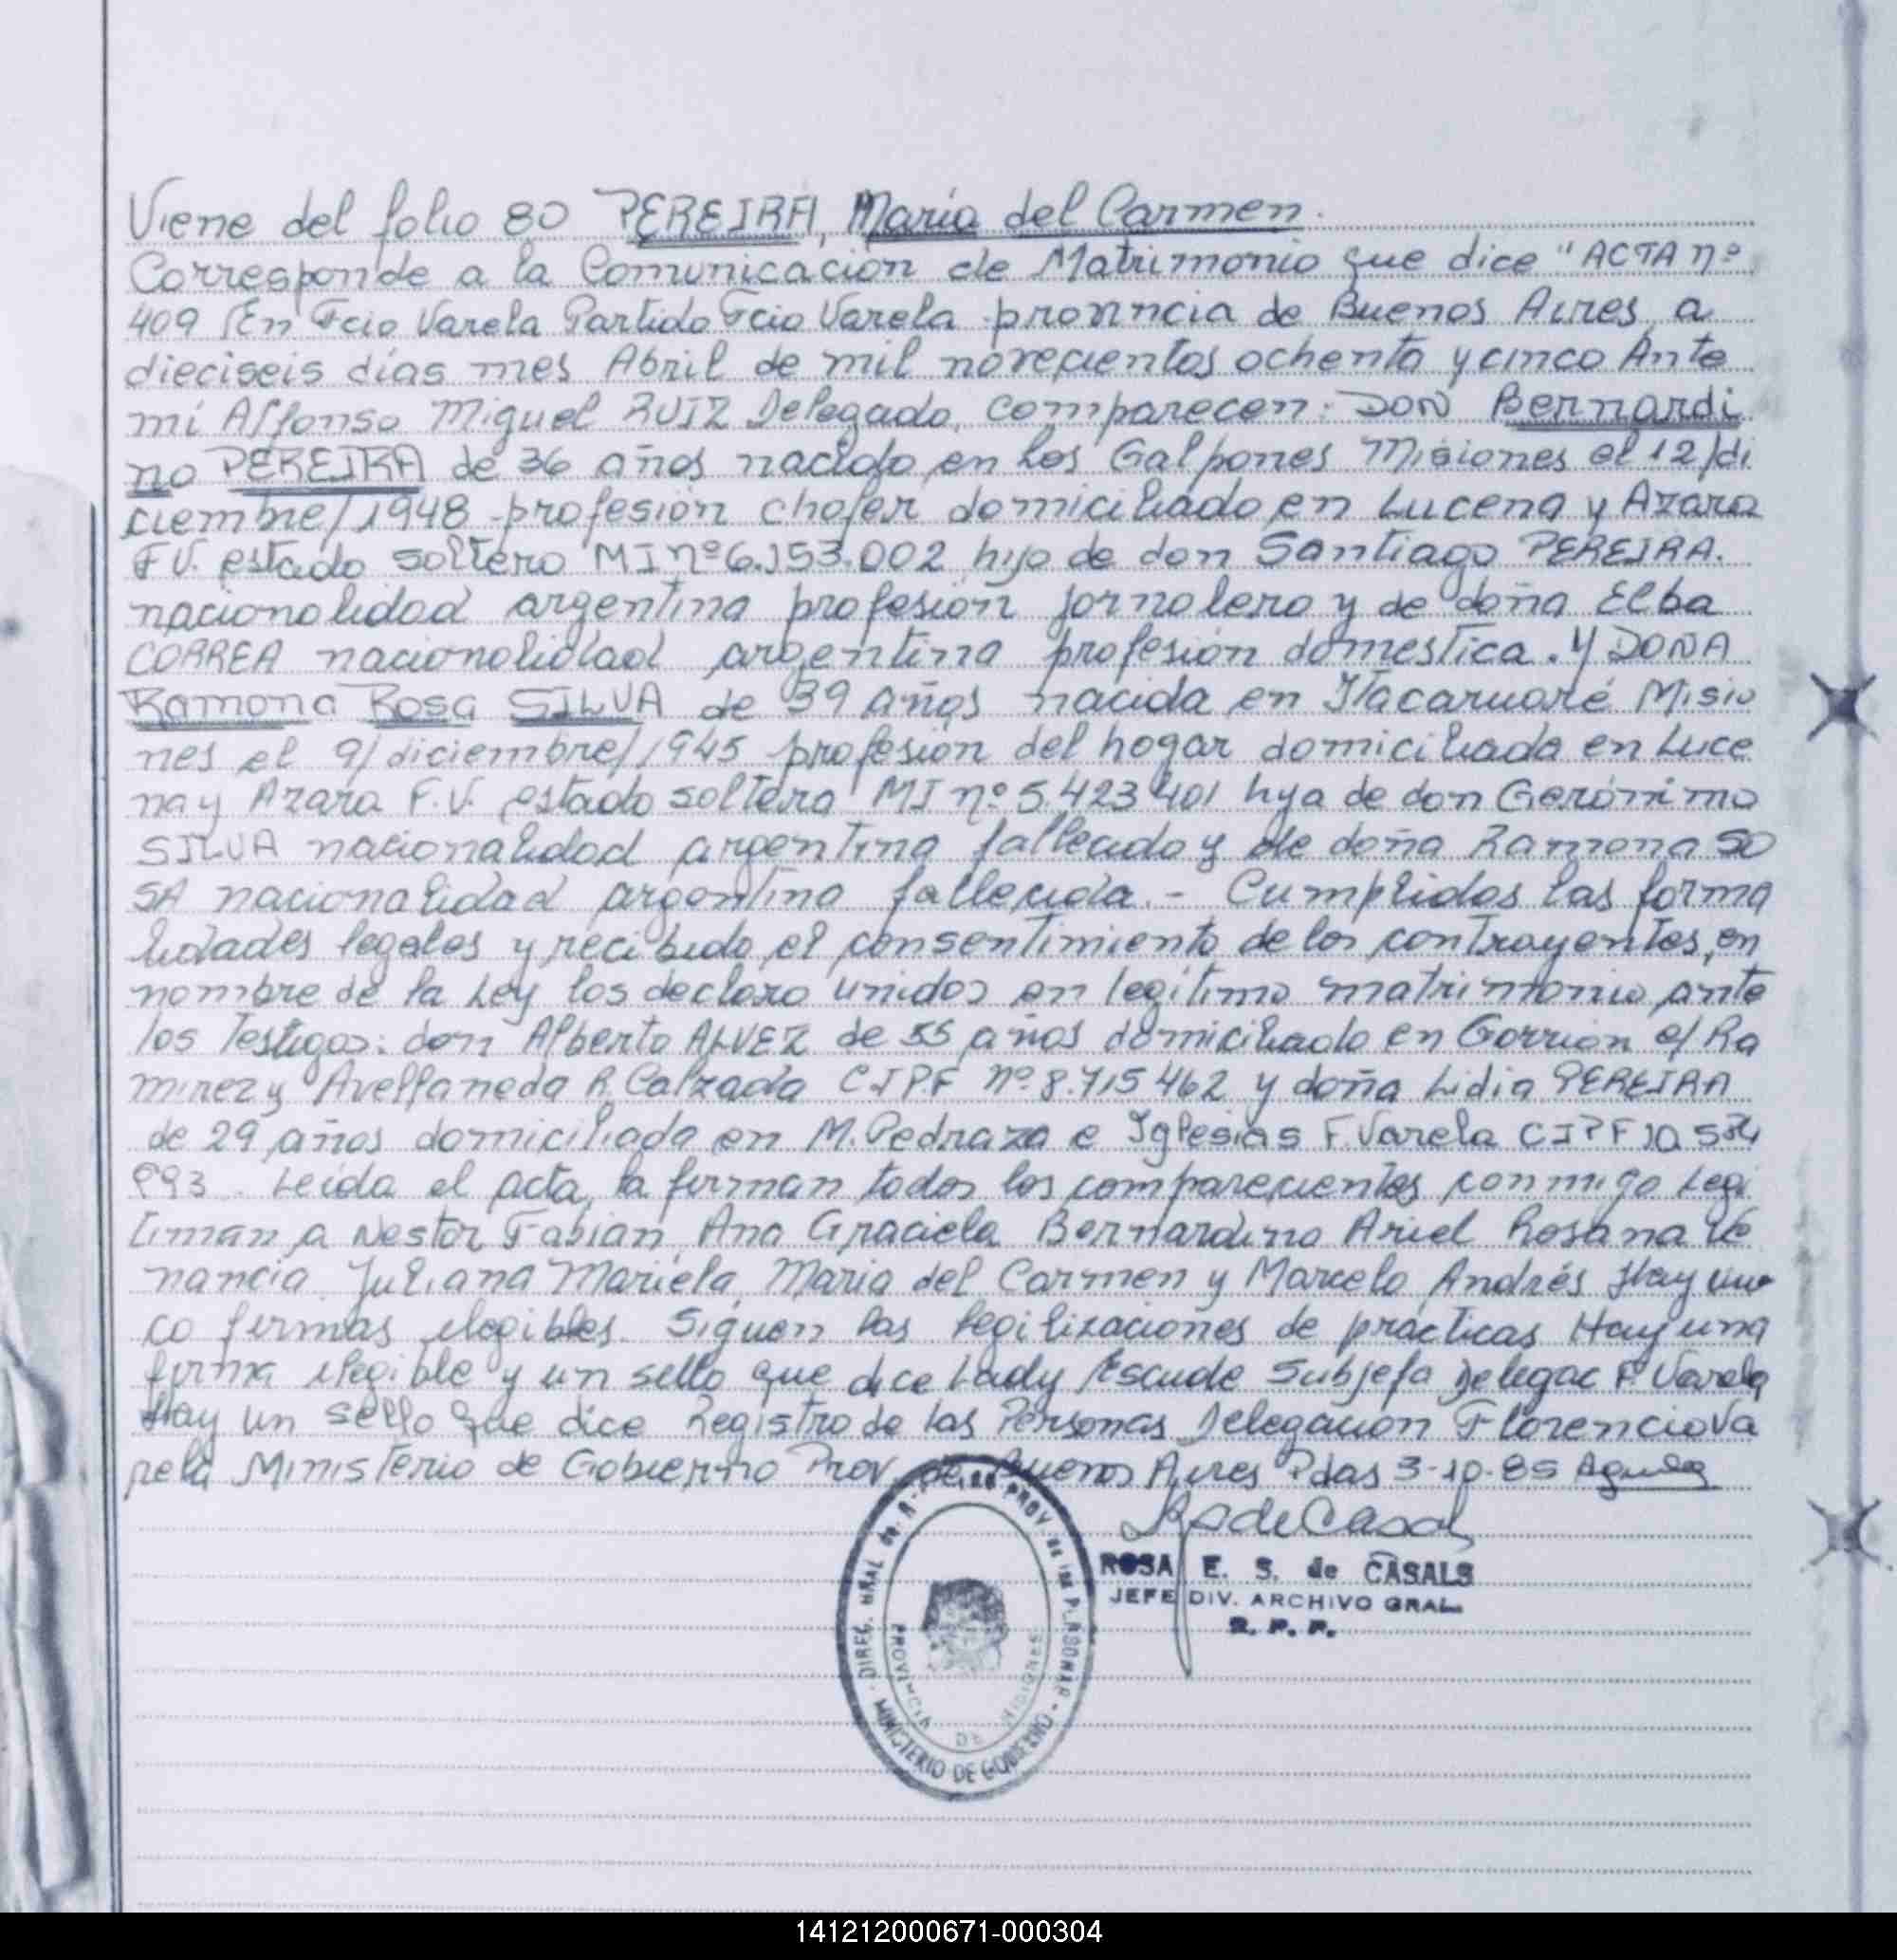 Viene del folio 80 PEREIRA, María del Carmen.
Corresponde a la Comunicación de Matrimonio que dice "ACTA nº
409 En Fcio Varela Partido Fcio Varela provincia de Buenos Aires, a
dieciseis días mes Abril de mil novecientos ochenta y cinco Ante
mí Alfonso Miguel RUIZ Delegado, comparecen: DON Bernardi
no PEREIRA de 36 años nacido en Los Galpones Misiones el 12/di
ciembre/1948 profesión chofer domiciliado en Lucena y Azara
F V. estado soltero MI nº 6.153.002 hijo de don Santiago PEREIRA.
nacionalidad argentina profesión jornalero y de doña Elba
CORREA nacionalidad argentina profesión domestica. Y DOÑA
Ramona Rosa SILVA de 39 años nacida en Itacaruaré Misio
nes el 9/diciembre/1945 profesión del hogar domiciliada en Luce
na y Azara F.V. estado soltera MI nº 5.423 401 hija de don Gerónimo
SILVA nacionalidad argentina fallecido y de doña Ramona SO
SA nacionalidad argentina fallecida. - Cumplidas las forma
lidades legales y recibido el consentimiento de los contrayentes, en
nombre de la Ley los declaro unidos en legítimo matrimonio ante
los Testigos: don Alberto ALVEZ de 55 años domiciliado en Gorrion e/ Ra
mirez y Avellaneda R. Calzada CIPF nº 8.715 462 y doña Lidia PEREIRA
de 29 años domiciliada en M. Pedraza e Iglesias F. Varela CIPF 10 534
893. Leída el acta, la firman todos los comparecientes conmigo Legi
timan a Nestor Fabian, Ana Graciela Bernardino Ariel Rosana Ve
nancia Juliana Mariela, Maria del Carmen y Marcelo Andrés Hay cin
co firmas ilegibles. Siguen las legilizaciones de prácticas Hay una
firma ilegible y un sello que dice Lady Escude Subjefa Delegac F. Varela
Hay un sello que dice Registro de las Personas Delegación Florencio Va
rela Ministerio de Gobierno Prov. de Buenos Aires Pdas 3-10-85
ROSA E. S. de CASALS
JEFE DIV. ARCHIVO GRAL.
R. P. P.
MINISTERIO DE GOBIERNO
PROVINCIA DE MISIONES
141212000671-000304